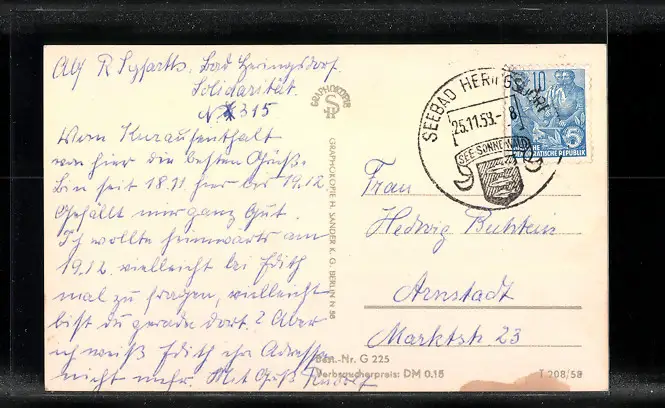 Alf R Syfarth. Bad Heringsdorf.
Solidarität.
N 315
Vom Kuraufenthalt
von hier die besten Grüße.
Bin seit 18.11. hier bis 19.12
Gefällt mir ganz Gut.
Ich wollte heimwärts am
19.12. vielleicht bei Edith
mal zu fragen, vielleicht
bist du gerade dort? Aber
ich weiß Edith ihr Adresse
nicht mehr. Mit Gruß Rudolf
GRAPHOKOPIE
GRAPHOKOPIE H. SANDER K. G. BERLIN N 58
SEEBAD HERINGSDORF
25.11.58.-8
SEE-SONNE-WALD
10
5
DEUTSCHE DEMOKRATISCHE REPUBLIK
Frau
Hedwig
Arnstadt
Marktstr. 23
Best.-Nr. G 225
Verbraucherpreis: DM 0.18
T 208/58